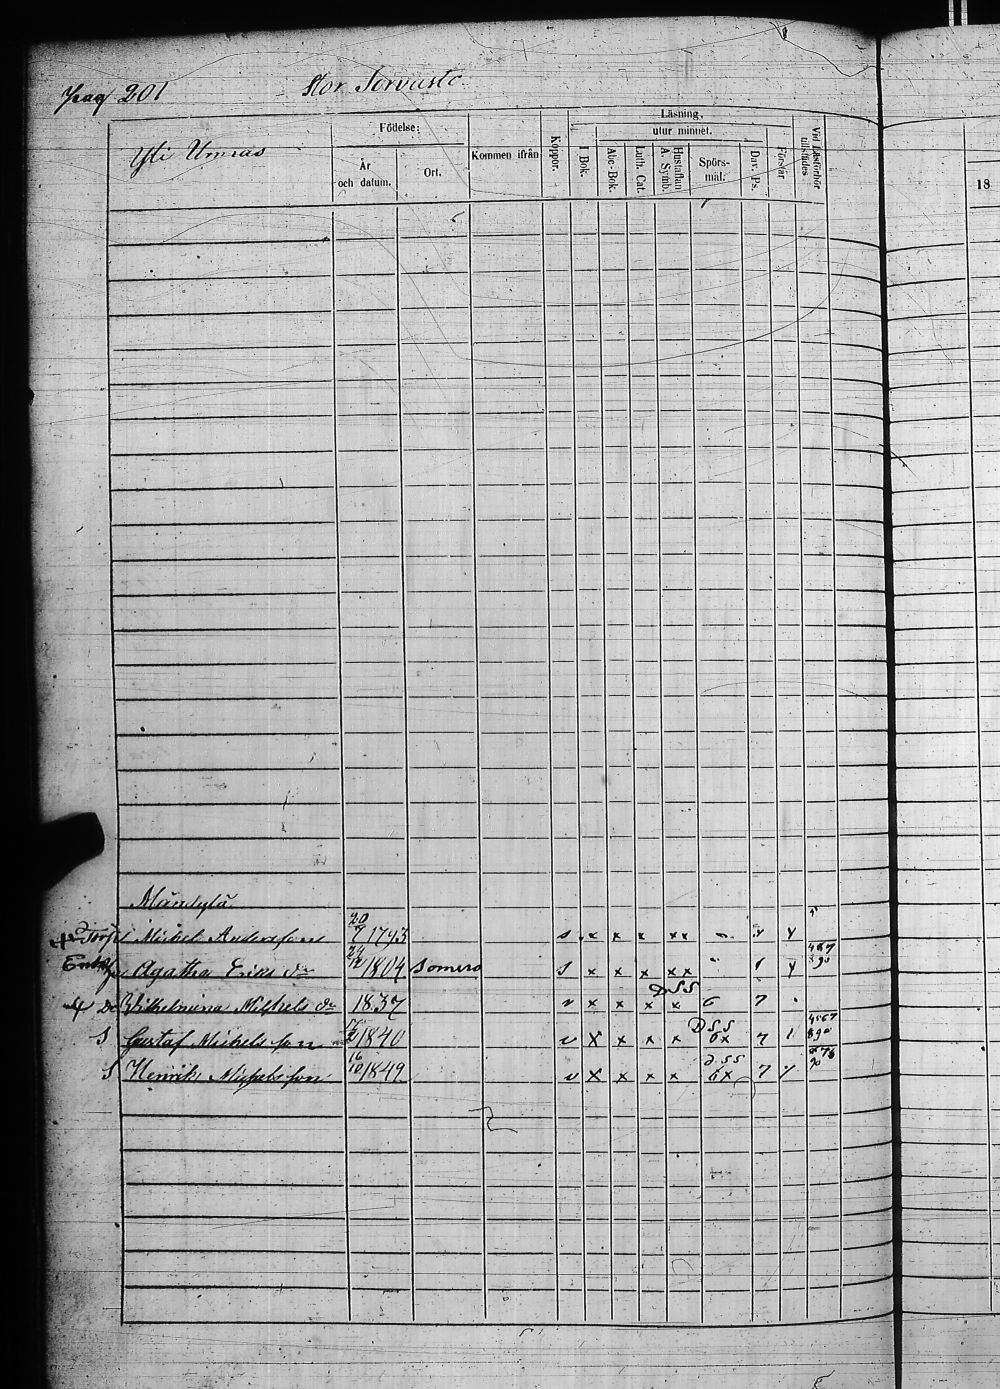 Pag 201 Stor Sorvasto
Yli Umras
Födelse:
År och datum.
Ort.
Kommen ifrån
Koppor.
Läsning,
utur minnet.
I Bok.
Abc-Bok.
Luth. Cat.
Hustaflan A. Symb.
Spörs-mål.
Dav. Ps.
Förstår
Vid Läsförhör tillstädes
18
Mäntylä
Torp Michel Andersson 20/7 1793 s x x x xx
Enk Agatha Eriks dr 24/12 1804 Somero s x x x xx
D Wilhelmina Michels dr 1837 v x x x x 6 7
S Gustaf Michels son 1840 v x x x x 6x 7 1
S Henrik Michels son 16/10 1849 v x x x x 6x 7 7